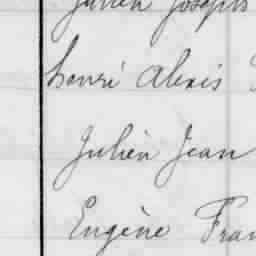 Julien Joseph
henri Alexis
Julien Jean
Eugène Fran